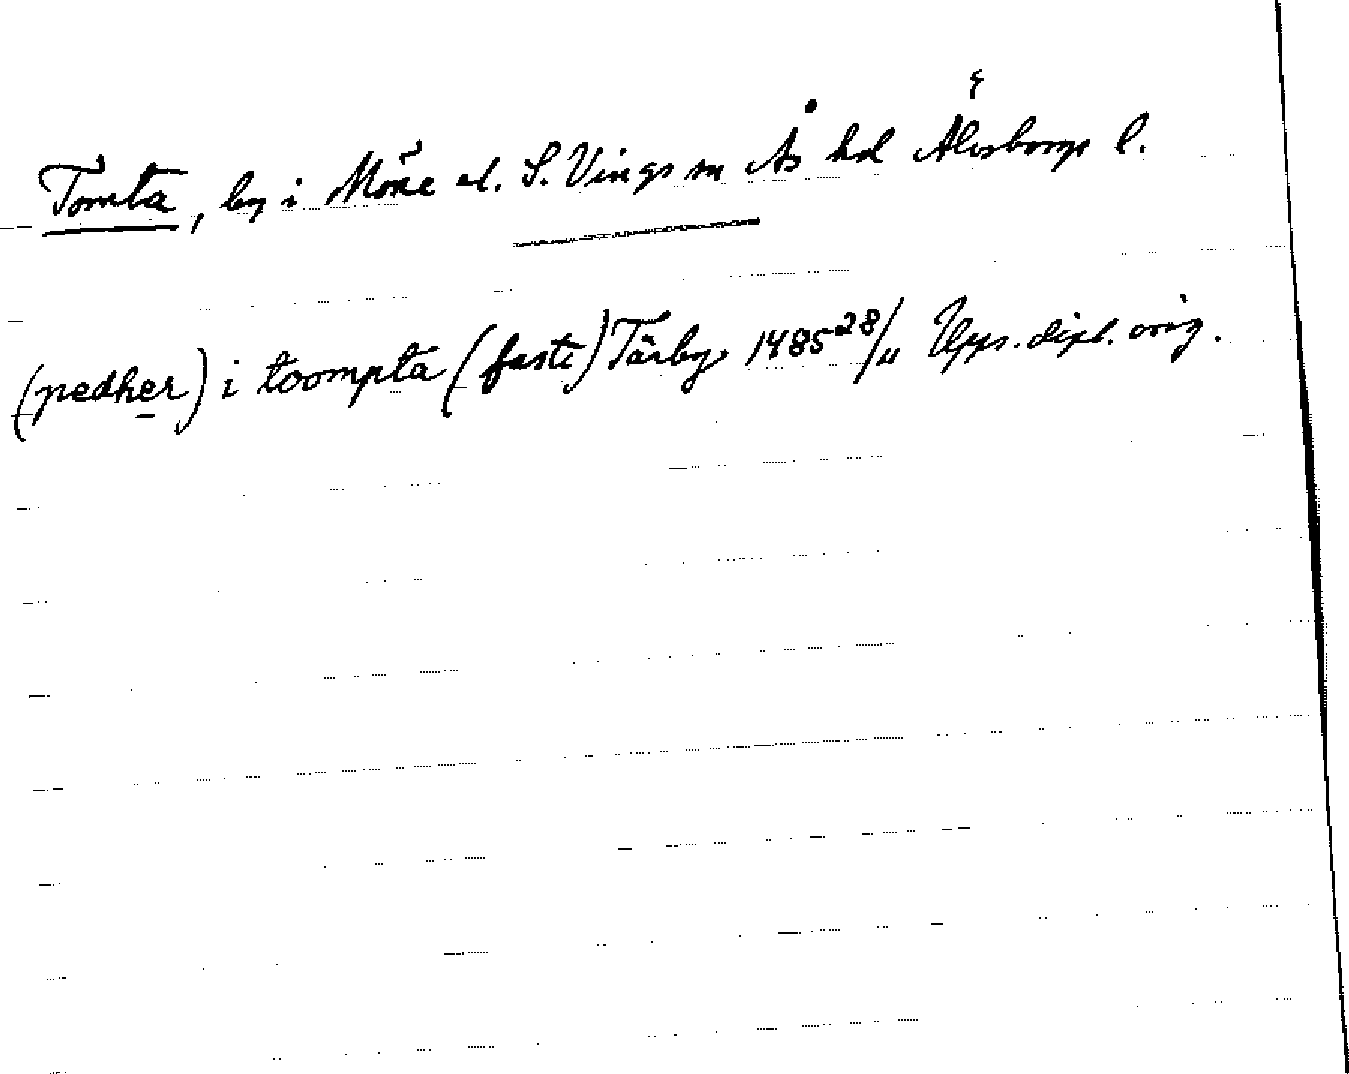 Tomta, by i Möne el. S. Vings sn Ås hd Älvsborgs l.
(pedher) i toompta (faste) Tärby 1485 28/11 Upps. dipl. orig.